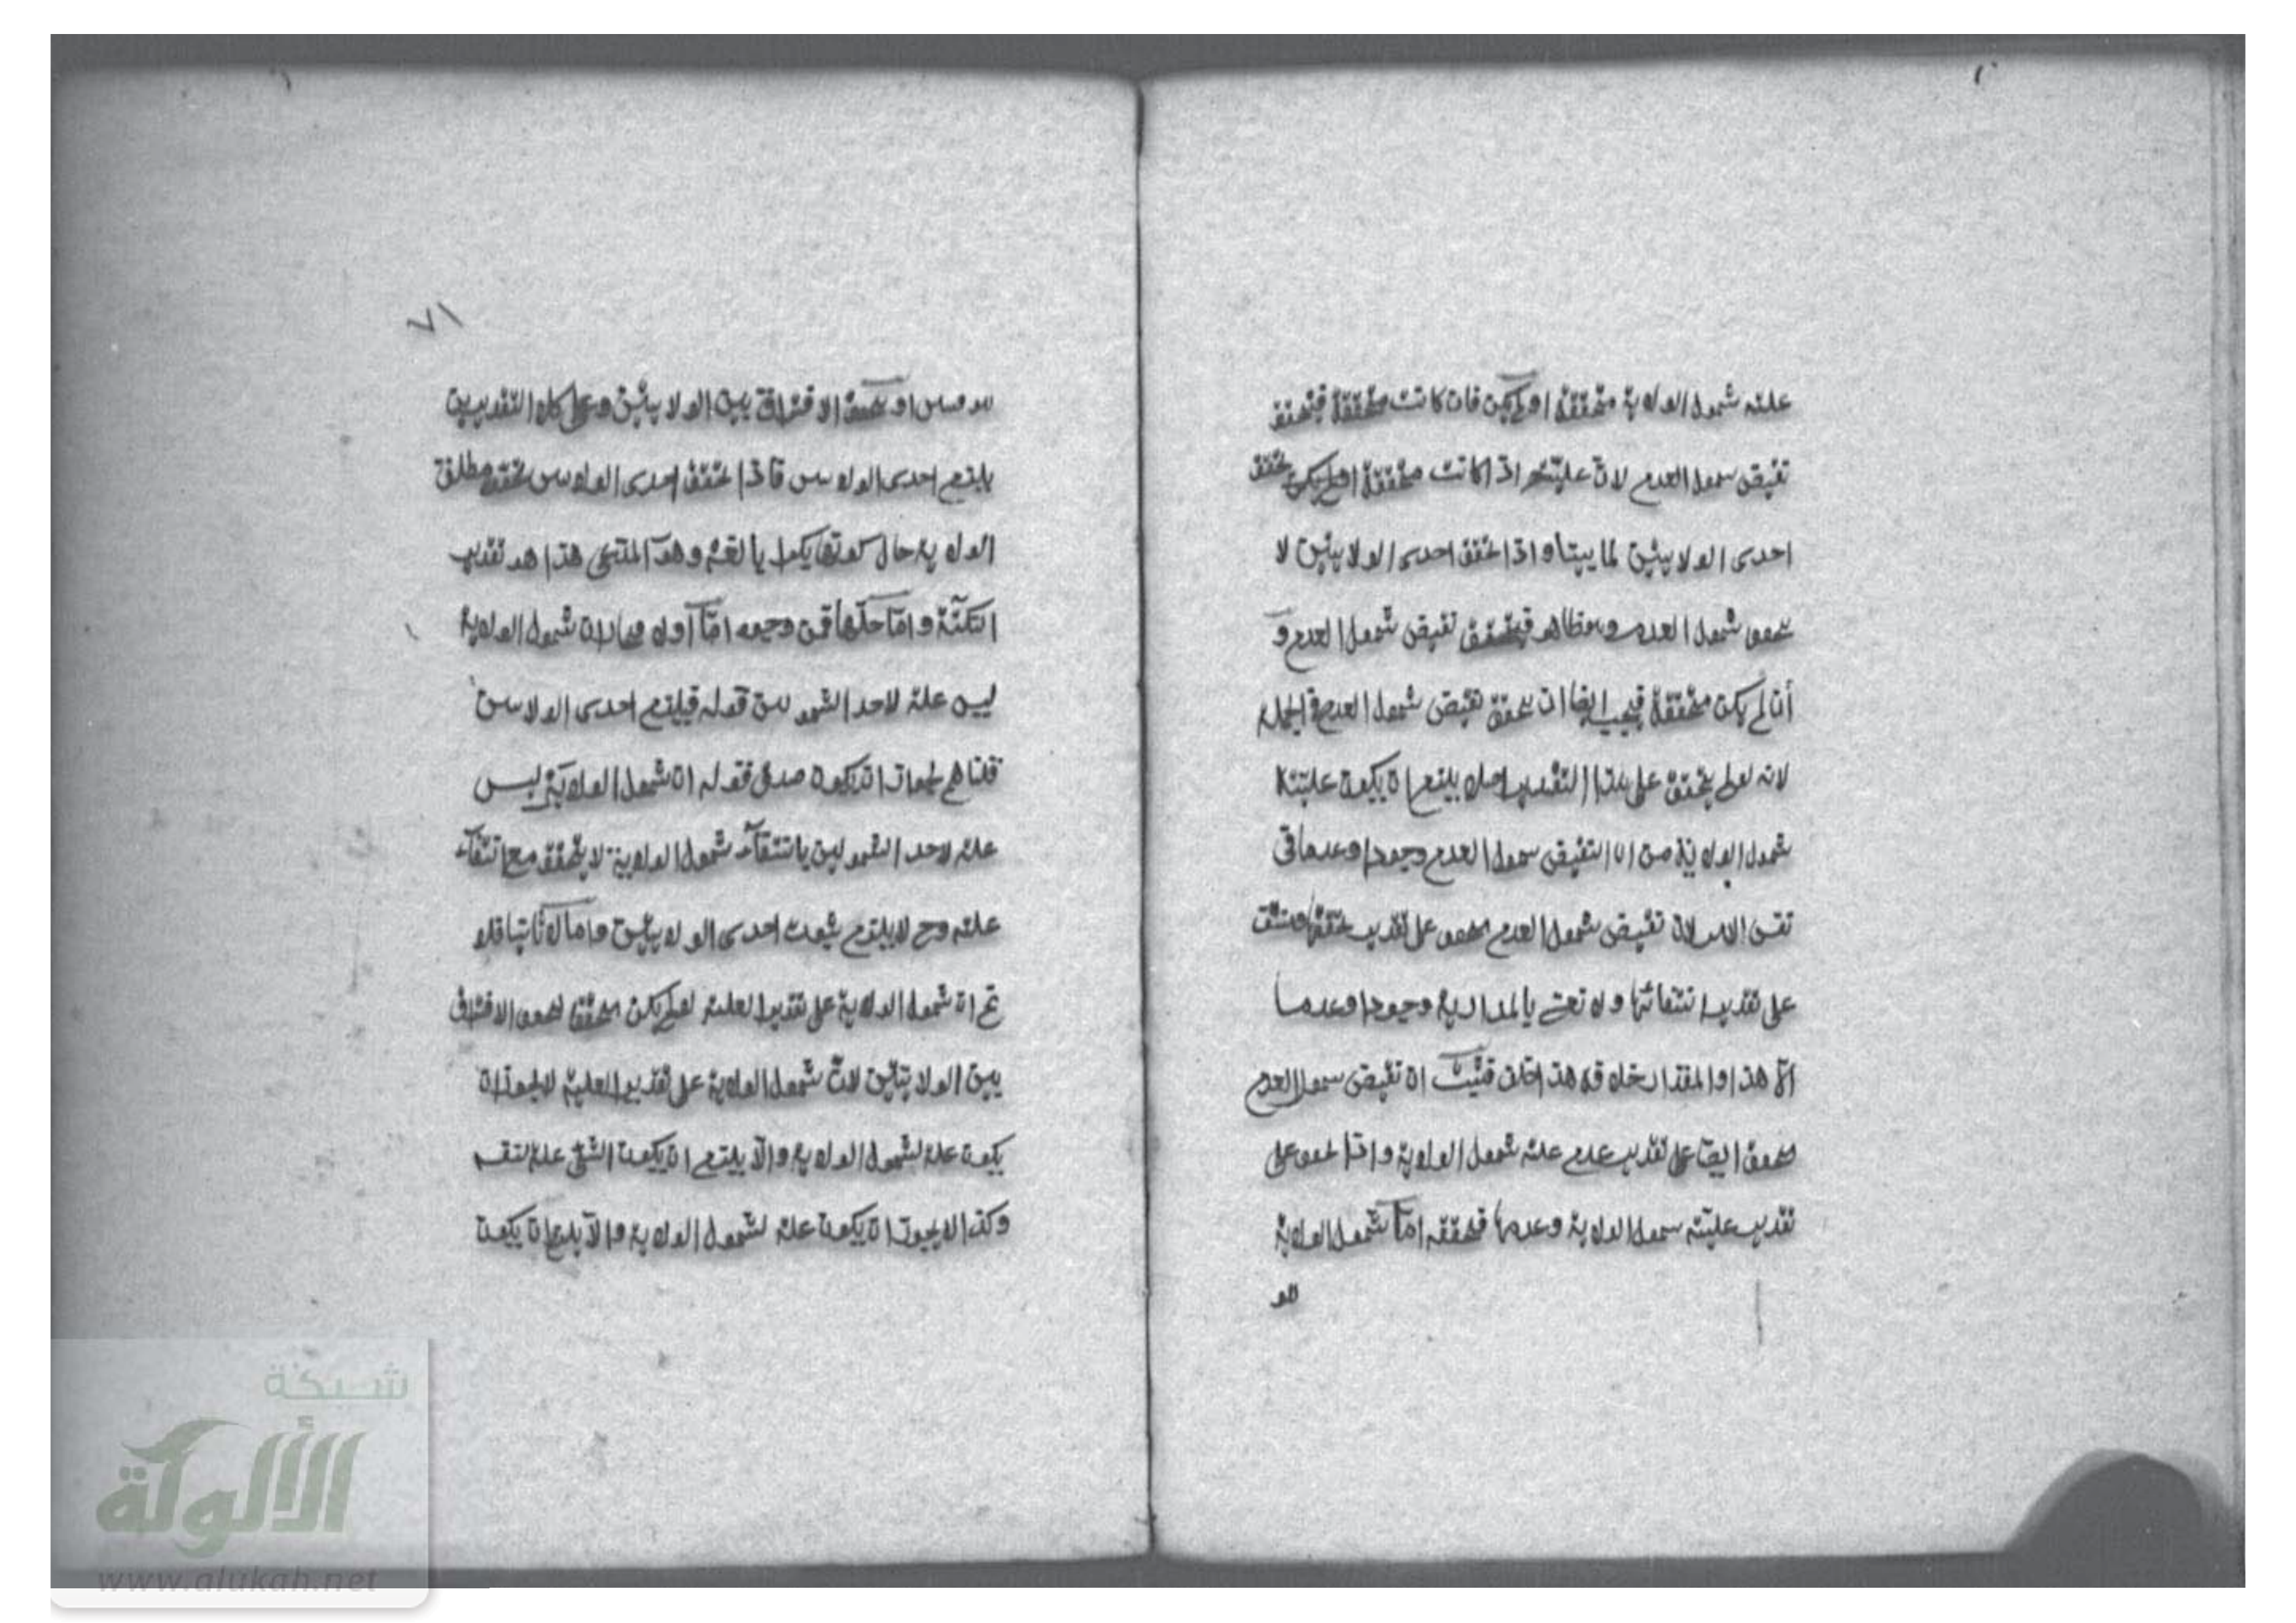 علته شمول الولاية متحققة او لم يكن فان كانت متحققة فيتحقق
نقيض شمول العدم لان عليته اذا كانت متحققة او لم يكن تحقق
احدى الولايتين لما بينا واذا تحقق احدى الولايتين لا
يتحقق شمول العدم وهو ظاهر فيتحقق نقيض شمول العدم و
أن لم يكن متحققة فيجب ايضا ان يتحقق نقيض شمول العدم في الجملة
لانه لو لم يتحقق على هذا التقدير اصلا يلزم ان يكون عليته
شمول الولاية مدارا لنقيض شمول العدم وجودا وعدما في
نفس الامر لان نقيض شمول العدم متحقق على تقدير تحققها ومنتف
على تقدير انتفائها ولا نعنى بالمدارية وجودا وعدما
الا هذا والمقدر خلافه هذا خلف فثبت ان نقيض شمول العدم
متحقق ايضا على تقدير عدم علته شمول الولاية واذا تحقق على
تقدير عليته شمول الولاية وعدمها فتحققه اما لشمول الولاية
٧١
او تحقق الافتراق بين الولايتين وعلى كلا التقديرين
يلزم احدى الولايتين فاذا تحقق احدى الولايتين تحقق مطلق
الولاية حال كونها بكرا بالغة وهو المدعى هذا هو تقدير
النكتة واما حلها فمن وجوه اما اولا فحالان شمول الولاية
ليس علة لاحد الشمولين قوله فيلزم احدى الولايتين
قلنا لجواز ان يكون صدق قوله ان شمول الولاية ليس
علة لاحد الشمولين بانتفاء شمول الولاية لا يتحقق مع انتفاء
علته وح لا يلزم ثبوت احدى الولايتين واما ثانيا فلو
تم ان شمول الولاية على تقدير العلية لو لم يكن متحققا لتحقق الافتراق
بين الولايتين لان شمول الولاية على تقدير العلية لا يجوز ان
يكون علة لشمول الولاية والا يلزم ان يكون الشئ علة لنفسه
وكذا لا يجوز ان يكون علة لشمول الولاية والا يلزم ان يكون
شبكة
الألوكة
www.alukah.net